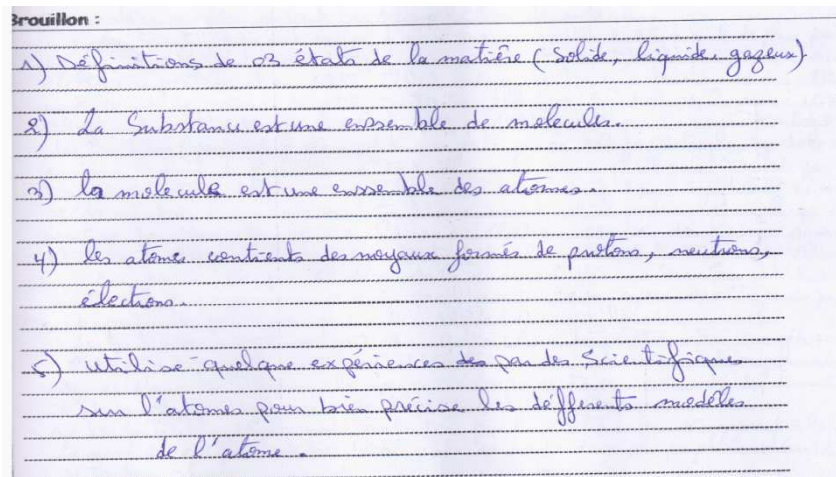 Brouillon :
1) Définitions de 03 états de la matière (Solide, liquide, gazeux)
2) La Substance est une enssemble de molecules.
3) la molecule est une enssemble des atomes.
4) les atomes contients des noyaux formés de protons, neutrons,
électrons.
5) utilise quelque expériences des par des Scientifiques
sur l'atomes pour bien précise les défferents modèles
de l'atome.